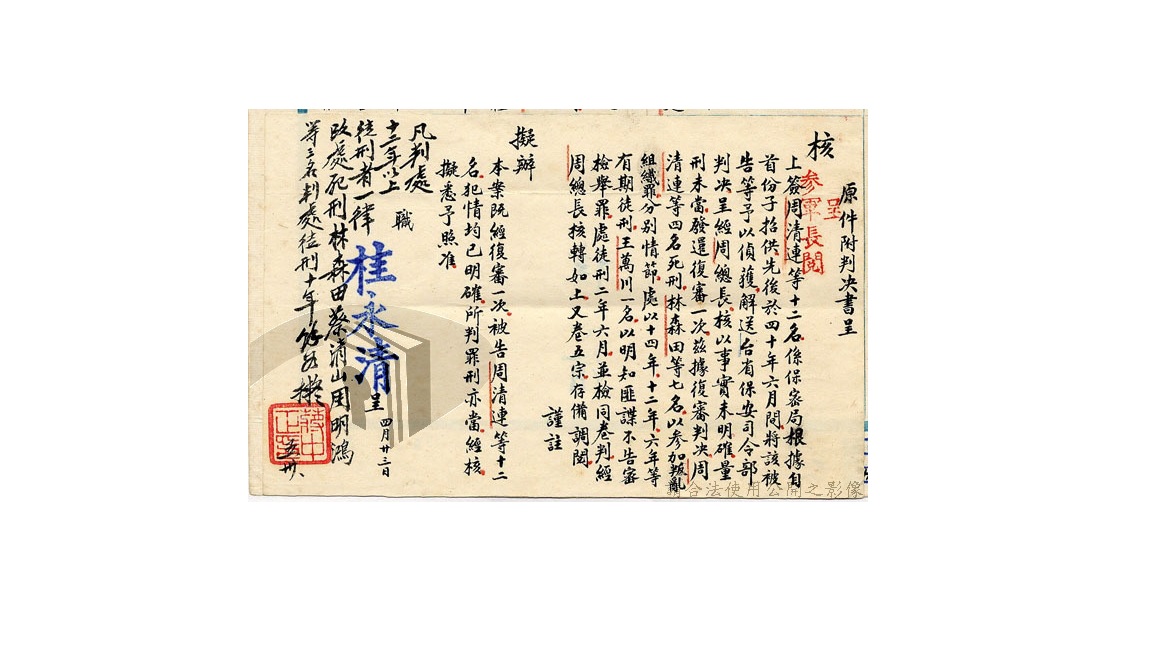 原件附判決書呈
呈
參軍長閱
核
上簽周清連等十二名係保密局根據自
首份子招供先後於四十年六月間將該被
告等予以偵獲解送台省保安司令部
判決呈經周總長核以事實未明確量
刑未當發還復審一次茲據復審判決周
清連等四名死刑林森田等七名以參加叛亂
組織罪分別情節處以十四年十二年六年等
有期徒刑王萬川一名以明知匪諜不告審
檢舉罪處徒刑二年六月並檢同卷判經
周總長核轉如上又卷五宗存備調閱
謹註
擬辦
本案既經復審一次被告周清連等十二
名犯情均已明確所判罪刑亦當經核
擬悉予照准
職
桂永清
呈
四月廿三日
凡判處
十二年以上
徒刑者一律
改處死刑林森田蔡清山周明鴻
等三名判處徒刑十年餘
蔣中正
請合法使用公開之影像